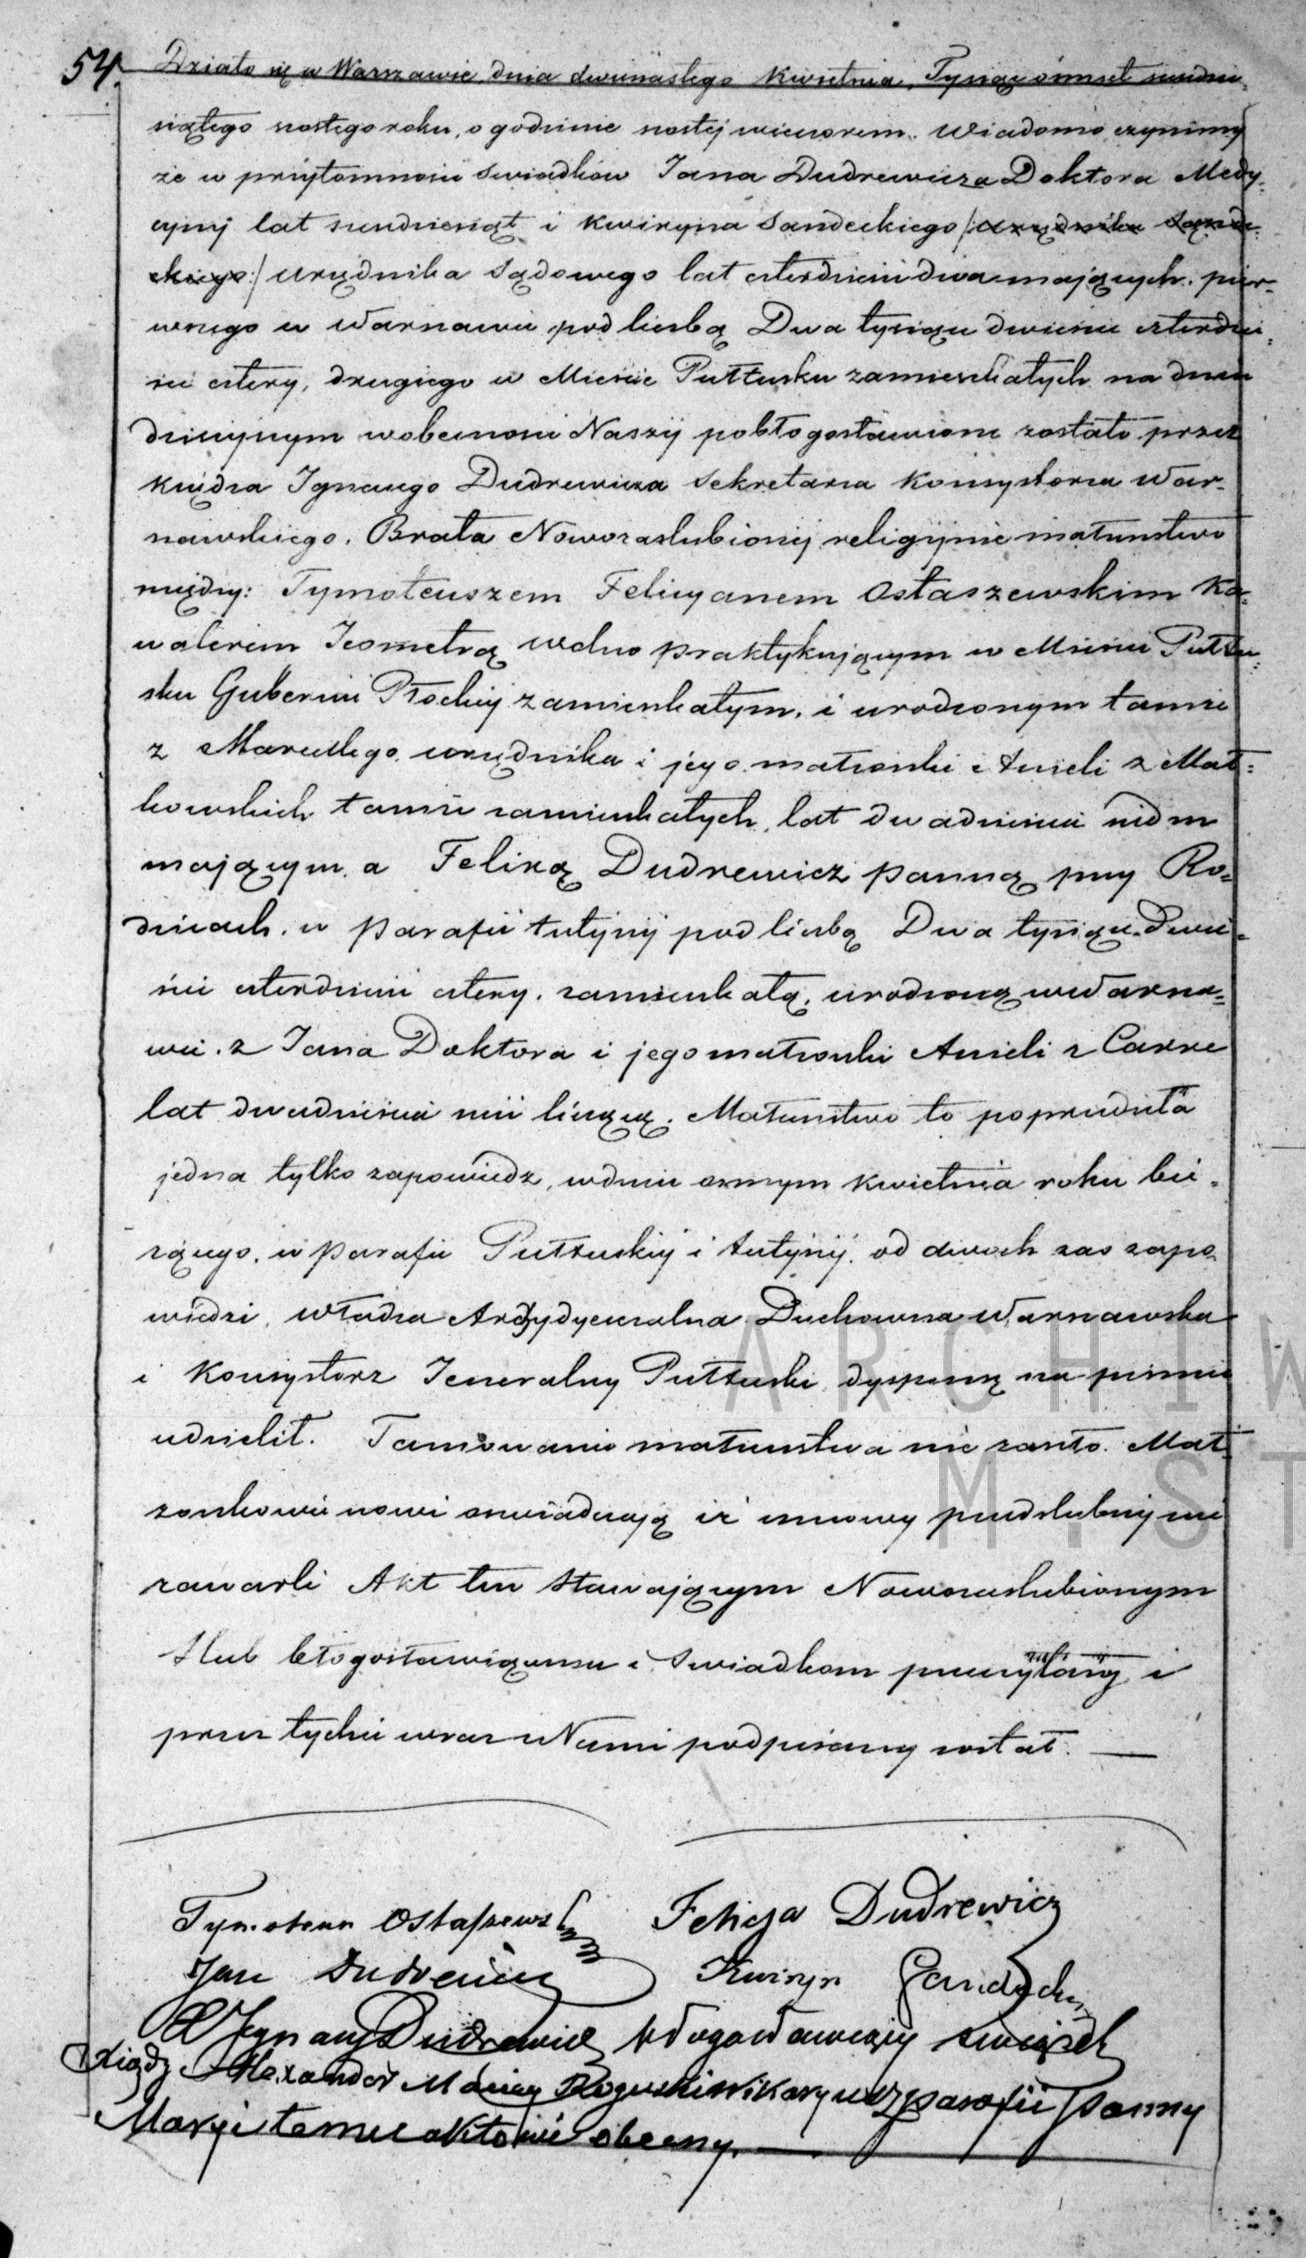 54. Działo się w Warszawie dnia dwunastego Kwietnia, Tysiąc ośmset sześćdzie-
siątego szóstego roku, o godzinie szóstej wieczorem. Wiadomo czynimy
że w przytomności świadków Jana Dudrewicza Doktora Medy-
cyny lat sześćdziesiąt i Kwiryna Sandeckiego /: urzędnika Sande-
ckiego :/ urzędnika Sądowego lat czterdzieści dwa mających, pier-
wszego w Warszawie pod liczbą Dwa tysiące dwieście czterdzie-
ści cztery, drugiego w Mieście Pułtusku zamieszkałych na dniu
dzisiejszym w obecności Naszej pobłogosławione zostało przez
Księdza Ignacego Dudrewicza Sekretarza Konsystorza War-
szawskiego, Brata Nowozaślubionej religijnie małżeństwo
między: Tymoteuszem Felicyanem Ostaszewskim Ka-
walerem Jeometrą wolno praktykującym w Mieście Pułtu-
sku Gubernii Płockiej zamieszkałym, i urodzonym tamże
z Marcellego urzędnika i jego małżonki Anieli z Mał-
kowskich tamże zamieszkałych, lat dwadzieścia siedm
mającym, a Felixą Dudrewicz panną przy Ro-
dzicach, w parafii tutejszej pod liczbą Dwa tysiące Dwie-
ście czterdzieści cztery, zamieszkałą, urodzoną w Warsza-
wie, z Jana Doktora i jego małżonki Anieli z Carre
lat dwadzieścia liczącą. Małżeństwo to poprzedziła
jedna tylko zapowiedź, w dniu ósmym Kwietnia roku bie-
żącego, w parafii Pułtuskiej i tutejszej, od dwóch zaś zapo-
wiedzi, władza Archydyecezalna Duchowna Warszawska
i Konsystorz Jeneralny Pułtuski dyspensę na piśmie
udzielił. Tamowanie małżeństwa nie zaszło. Mał-
żonkowie nowi oświadczają iż umowy przedślubnej nie
zawarli Akt ten Stawającym Nowozaślubionym
Ślub błogosławiącemu i Świadkom przeczytany i
przez tychże wraz z Nami podpisany został.
Tymoteusz Ostaszewski Felicja Dudrewicz
Jan Dudrewicz Kwiryn Sandecki
X Ignacy Dudrewicz błogosławiący związek
Xiądz Alexander Maciey Roguski Wikaryusz parafii Panny
Maryi temu aktowi obecny.